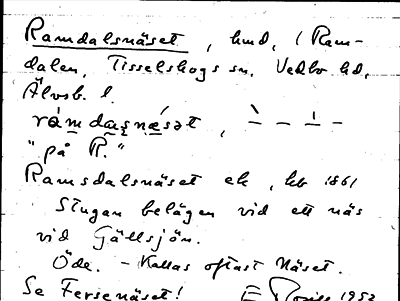 Ramdalsnäset, hmd, (Ram-
dalen, Tisselskogs sn, Vedbo hd,
Älvsb. l.
"på R."
Ramsdalsnäset ek, hb 1861
Stugan belägen vid ett näs
vid Gällsjön.
Öde. - Kallas oftast Näset.
Se Fersenäset! E 1952